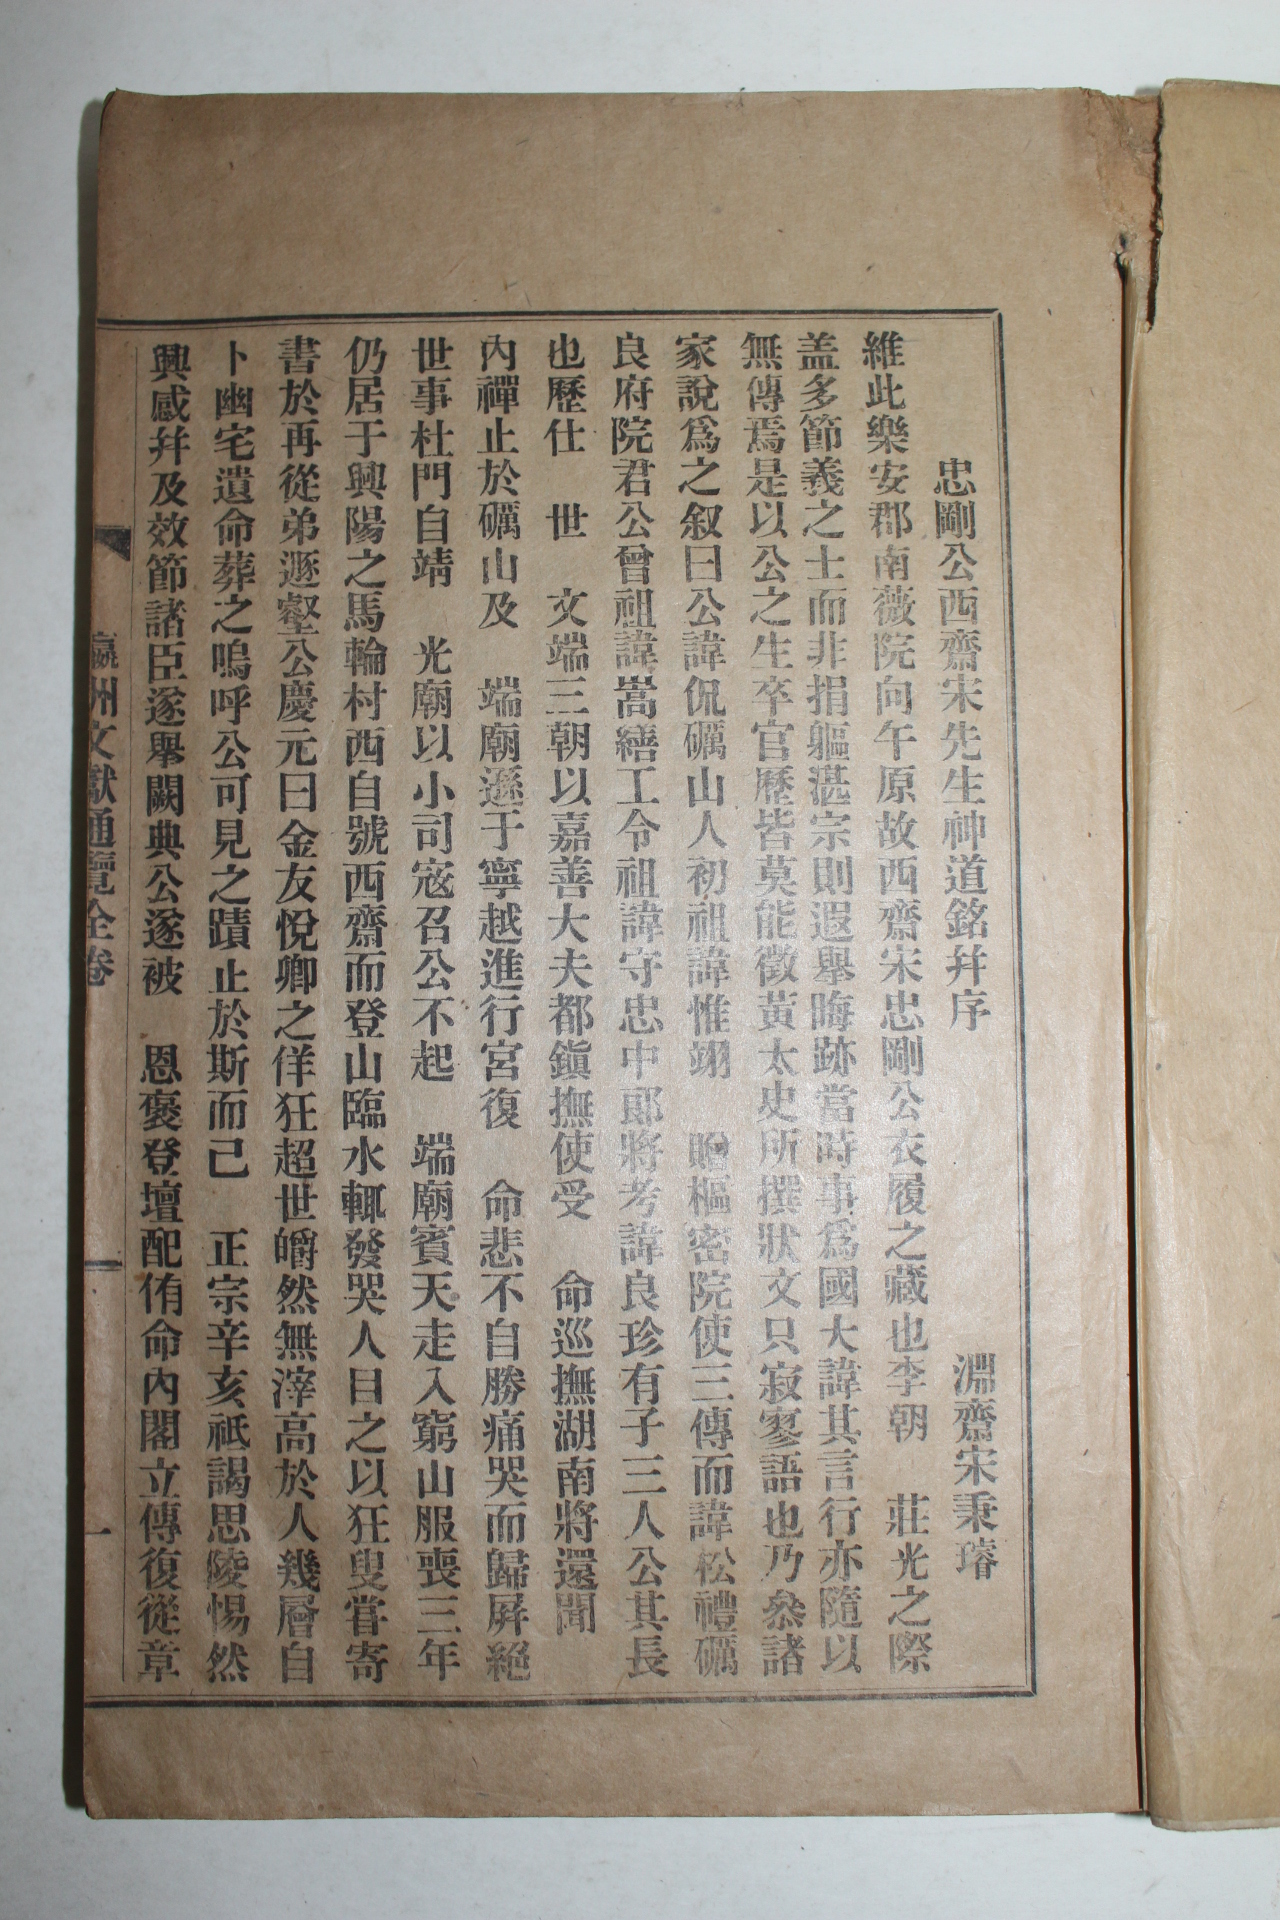 忠剛公西齋宋先生神道銘幷序
淵齋宋秉璿
維此樂安郡南薇院向午原故西齋宋忠剛公衣履之藏也李朝　莊光之際
盖多節義之士而非捐軀湛宗則遐舉晦跡當時事爲國大諱其言行亦隨以
無傳焉是以公之生卒官歷皆莫能徵黃太史所撰狀文只寂寥語也乃叅諸
家說爲之叙曰公諱侃礪山人初祖諱惟翊　贈樞密院使三傳而諱松禮礪
良府院君公曾祖諱嵩繕工令祖諱守忠中郞將考諱良珍有子三人公其長
也歷仕　世　文端三朝以嘉善大夫都鎭撫使受　命巡撫湖南將還聞
內禪止於礪山及　端廟遜于寧越進行宮復　命悲不自勝痛哭而歸屛絕
世事杜門自靖　光廟以小司寇召公不起　端廟賓天走入窮山服喪三年
仍居于興陽之馬輪村西自號西齋而登山臨水輒發哭人目之以狂叟嘗寄
書於再從弟遯壑公慶元曰金友悅卿之佯狂超世皭然無滓高於人幾層自
卜幽宅遺命葬之嗚呼公可見之蹟止於斯而己　正宗辛亥祗謁思陵惕然
興感幷及效節諸臣遂舉闕典公遂被　恩褒登壇配侑命內閣立傳復從章
瀛州文獻通覽全卷
一